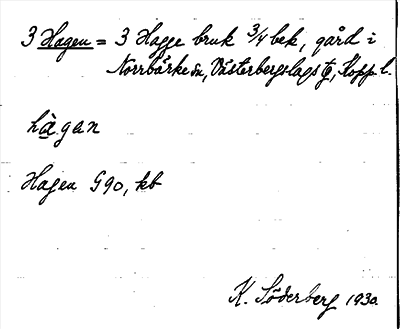 3 Hagen = 3 Hagge bruk 3/4 bek, gård i
Norrbärke sn, Västerbergslags tg, Kopp. l.
hàgan
Hagen G90, kb
K. Söderberg 1930